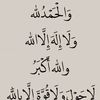 وَالْحَمْدُ لِلَّهِ
وَلَا إِلَهَ إِلَّا اللَّه
وَاللَّهُ أَكْبَرُ
لَا حَوْلَ وَلَا قُوَّةَ إِلَّا بِاللَّهِ